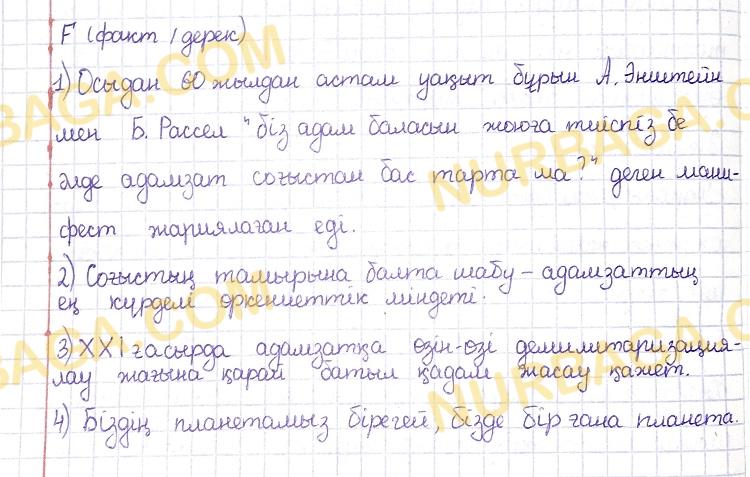 F (факт / дерек)
1) Осыдан 60 жылдан астам уақыт бұрын А. Энштейн
мен Б. Рассел "біз адам баласын жоюға тиіспіз бе
әлде адамзат соғыстан бас тарта ма?" деген мани-
фест жариялаған еді.
2) Соғыстың тамырына балта шабу - адамзаттың
ең күрделі өркениеттік міндеті.
3) XXI ғасырда адамзатқа өзін-өзі демилитаризация-
лау жағына қарай батыл қадам жасау қажет.
4) Біздің планетамыз бірегей, бізде бір ғана планета.
NURBAGA.COM
NURBAGA.COM
NURBAGA.COM
NURBAGA.COM